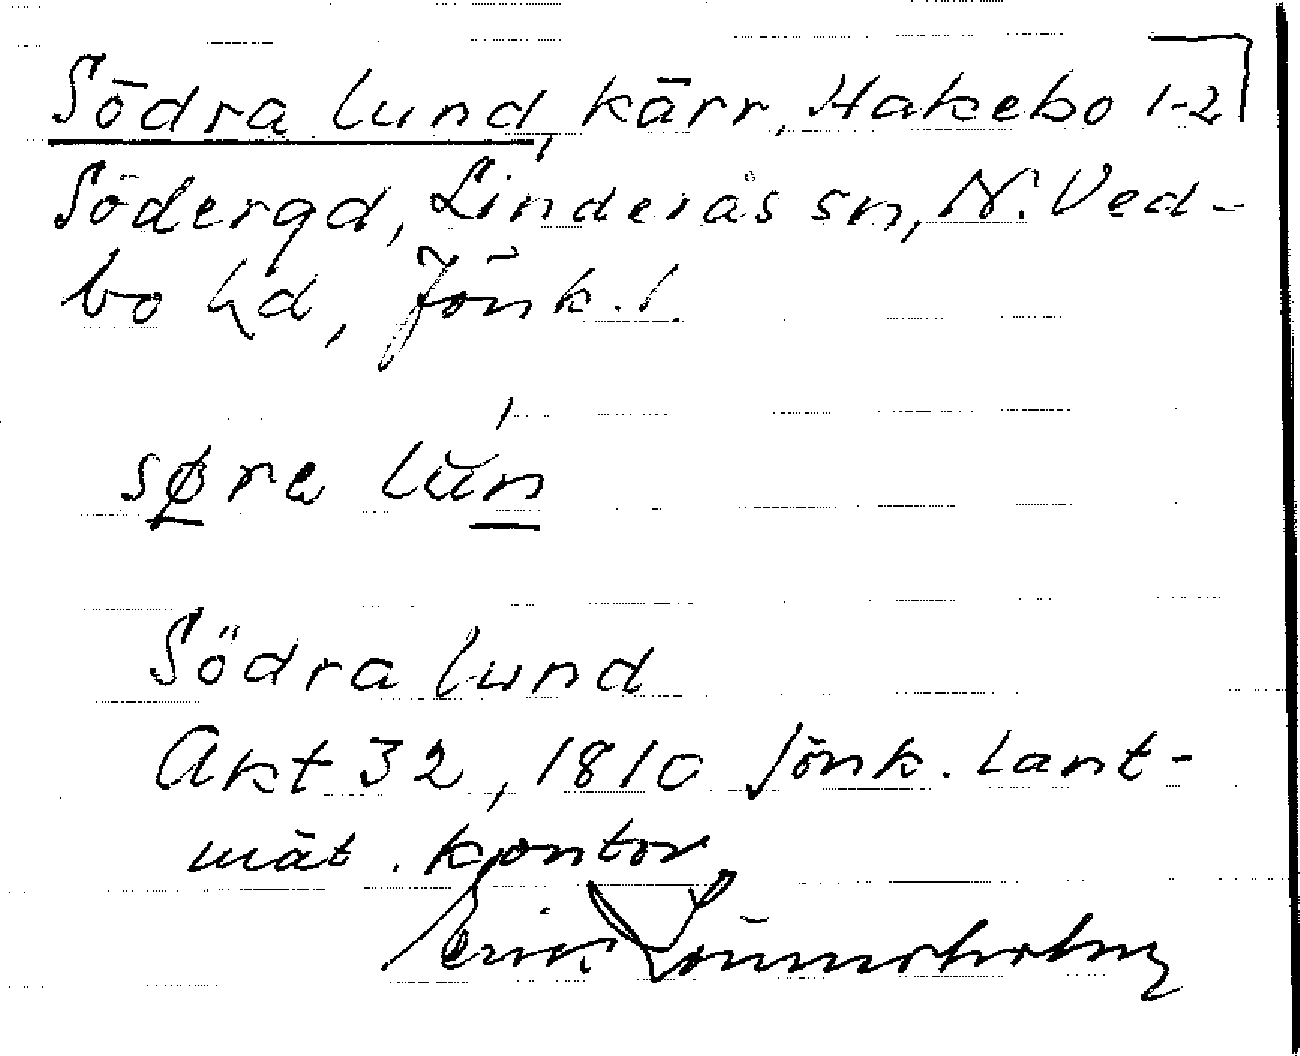 Södra lund, kärr, Hakebo 1-2
Södergd, Linderås sn, N. Ved-
bo hd, Jönk. l.
søra lun
Södra lund
Akt 32, 1810 Jönk. lant-
mät. kontor
Eric